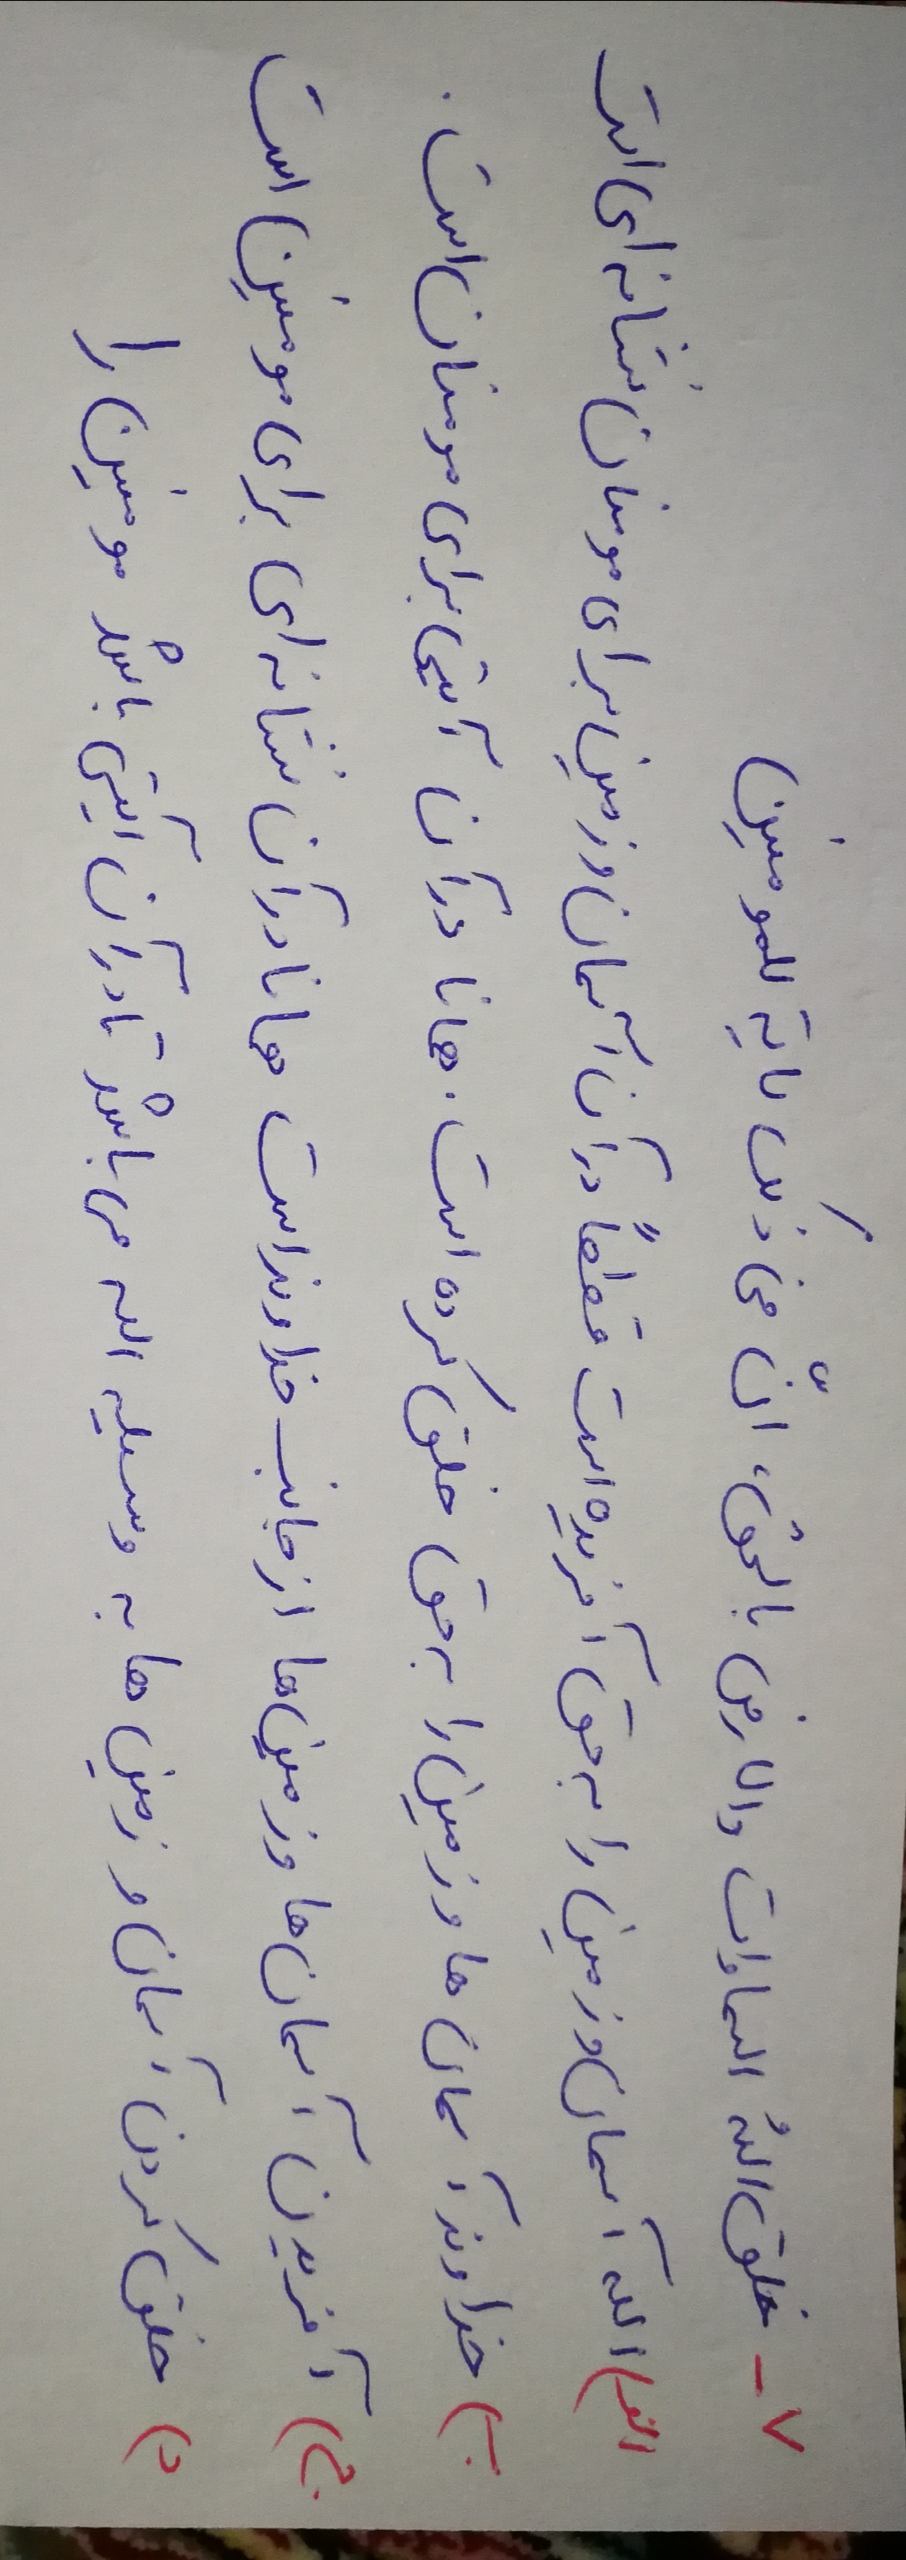 ۷- خلق اللهُ السماوات والارض بالحق، انّ فی ذلک لایة للمومنین
الف) الله آسمان و زمین را به حق آفریده است قطعاً در آن آسمان و زمین برای مومنان نشانه ای است
ب) خداوند آسمان ها و زمین را به حق خلق کرده است. همانا در آن آیتی برای مومنان است.
ج) آفریدن آسمان ها و زمین ها از جانب خداوند است همانا در آن نشانه ای برای مومنین است
د) خلق کردن آسمان و زمین ها به وسیله الله می باشد تا در آن آیتی باشد مومنین را